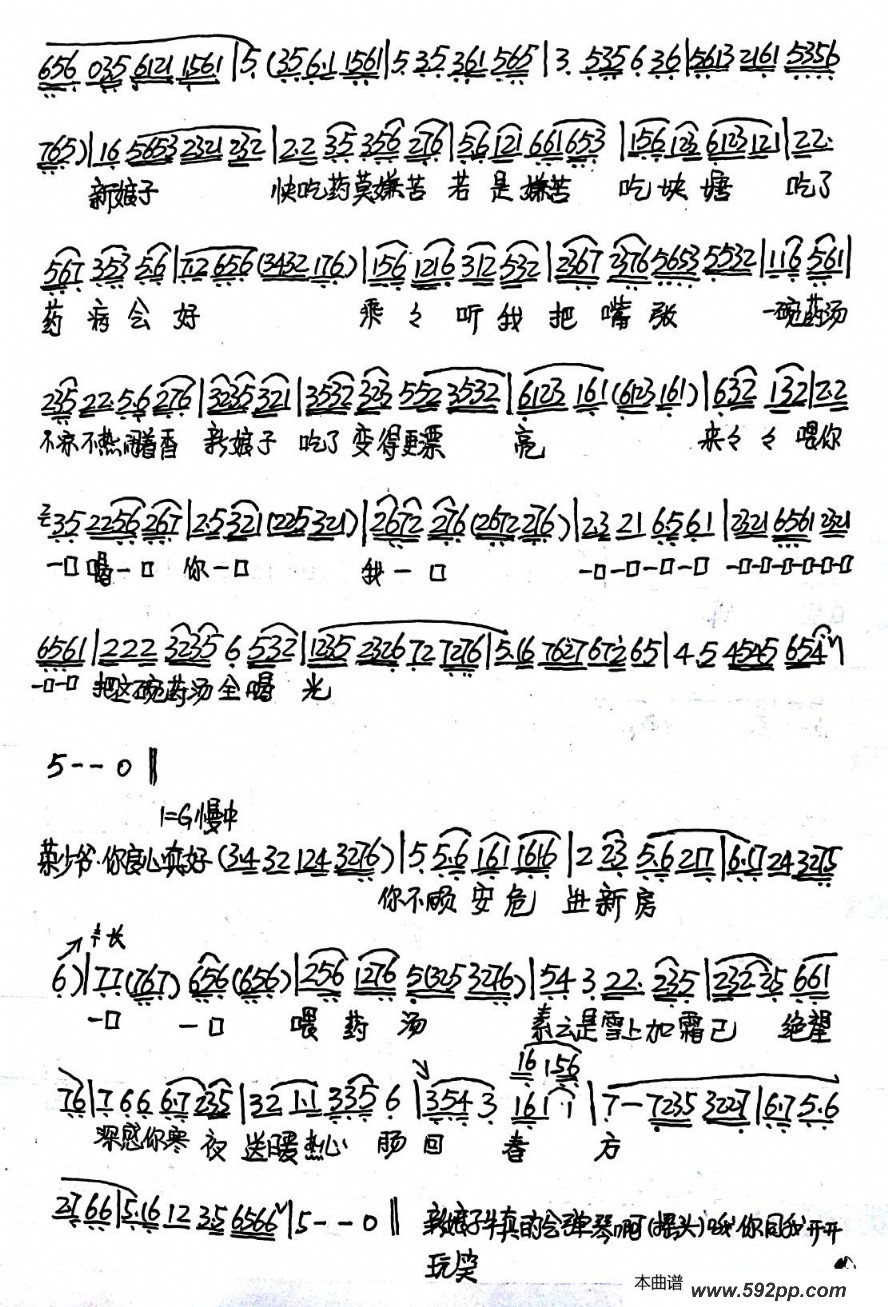 656 035 6121 1561 | 5 (35 6·1 1561 | 5·35 361 565 | 3· 535 6 36 | 5613 2161 5356
765) | 16 5653 2321 232 | 2·2 35 356 276 | 5·6 121 661 653 | 156 123 6123 121 | 2 2·
新娘子 快吃药莫嫌苦 若是嫌苦 吃块塘 吃了
567 353 5·6 | 7·2 656 (3432 176) | 156 1216 312 532 | 2367 2376 5653 5532 | 116 561 |
药病会好 乖々听我把嘴张 一碗药汤
235 22· 5·6 276 | 3235 321 | 3532 323 552 3532 | 6123 161 (6123 161) | 632 132 | 2·2
不凉不热闻着香 新娘子 吃了变得更漂 亮 来々々喂你
35 2256 267 | 2·5 321 (225 321) | 2672 276 (2672 276) | 2·3 21 6·5 61 | 2321 6561 2321
一口喝一口 你一口 我一口 一口一口一口一口 一口一口一口一口一口一口
6561 | 222 3235 6 532 | 1235 2326 72 7276 | 5·16 7627 672 65 | 4·5 4545 654
一口一口 把这碗药汤全喝 光
5 - - 0 ‖
1=G 慢中
荣少爷·你良心真好 (34 32 124 3276) | 5 5·6 161 1616 | 2 23 5·6 217 | 6·17 24 3275
你不顾安危 进新房
6) | 77 (767) 656 (656) | 256 1276 5 (325 3276) | 54 3 22· 235 | 232·25 661
一口 一口 喂药汤 素云是雪上加霜已 绝望
16 156
76 | 7 66 6·7 235 | 32 1·1 335 6 | 354 3 161·1 | 7 - 7235 3227 | 6·7 5·6
深感你寒夜送暖热心 肠回春 方
27 66 | 5·16 12 35 6566 | 5 - - 0 ‖ 新娘子 真的会弹琴啊(摇头)哦你同我开开
玩笑
本曲谱 www.592pp.com